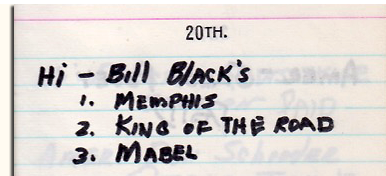 20TH.
Hi - Bill Black's
1. MEMPHIS
2. KING OF THE ROAD
3. MABEL